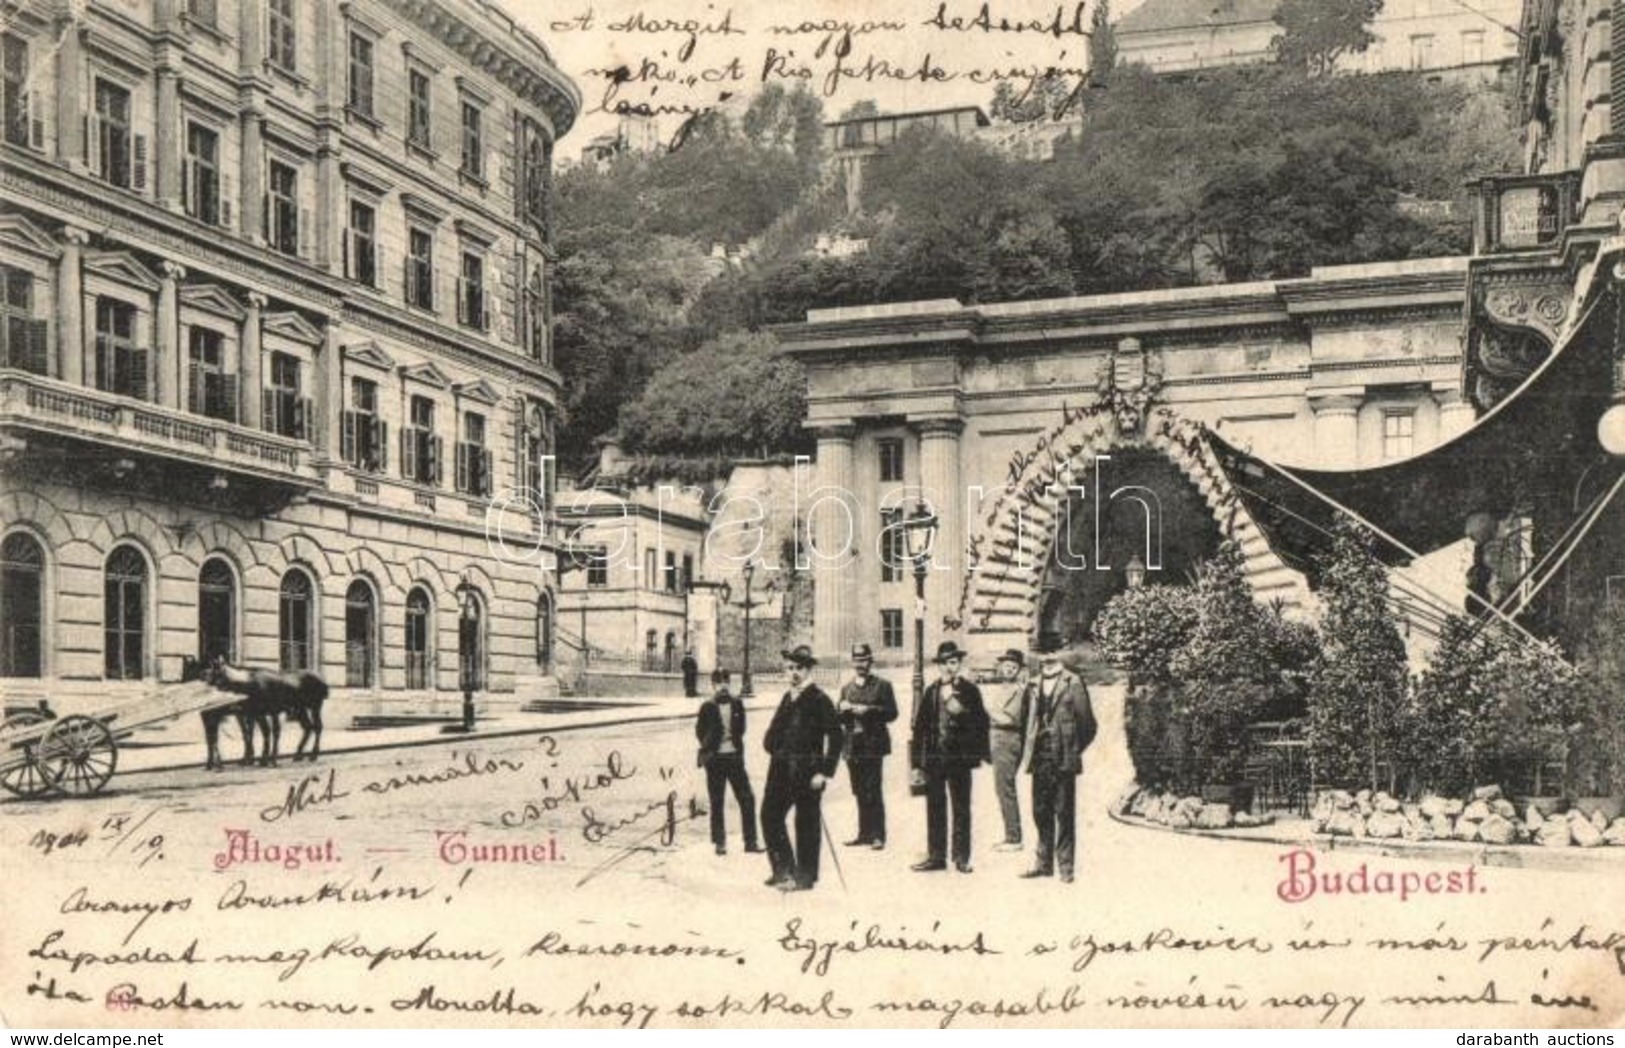 A Margit nagyon tetszett
neki. „A kis fekete czigány
leány"
Mit csinálsz?
csókol
1904 IX/19.
Alagut. — Tunnel.
Budapest.
Aranyos Arankám!
Lapodat megkaptam, köszönöm. Egyébiránt a Boskovicz úr már péntek
óta Pesten van. Mondta, hogy sokkal magasabb növésű vagy mint
darabanth
darabanth auctions